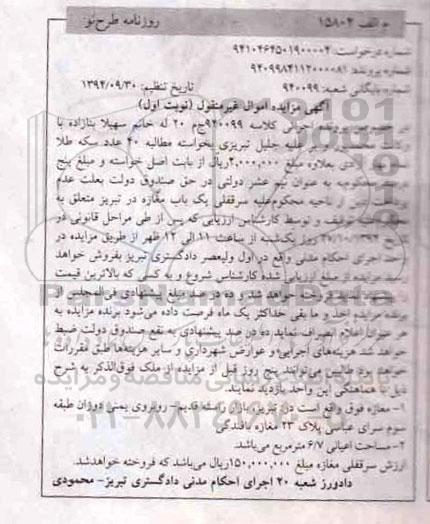 م الف ۱۵۸۰۴ روزنامه طرح نو
شماره درخواست: ۹۴۱۰۴۶۴۵۰۱۹۰۰۰۰۴
شماره پرونده: ۹۴۰۹۹۸۴۱۱۲۰۰۰۰۸۱
شماره بایگانی شعبه: ۹۴۰۰۹۹ تاریخ تنظیم: ۱۳۹۴/۰۹/۳۰
آگهی مزایده اموال غیرمنقول (نوبت اول)
در خصوص پرونده اجرائی کلاسه ۹۴۰۰۹۹ج ۲۰ له خانم سهیلا بنازاده با
علیه جلیل تبریزی بخواسته مطالبه ۴۰ عدد سکه طلا
بعلاوه مبلغ ۲,۰۰۰,۰۰۰ریال از بابت اصل خواسته و مبلغ پنج
به عنوان نیم عشر دولتی در حق صندوق دولت بعلت عدم
از ناحیه محکوم‌علیه سرقفلی یک باب مغازه در تبریز متعلق به
توقیف و توسط کارشناس ارزیابی که پس از طی مراحل قانونی در
روز یکشنبه از ساعت ۱۱ الی ۱۲ ظهر از طریق مزایده در
اجرای احکام مدنی واقع در اول ولیعصر دادگستری تبریز بفروش خواهد
مزایده از مبلغ ارزیابی شده کارشناس شروع و به کسی که بالاترین قیمت
فروخته خواهد شد و ده در صد مبلغ پیشنهادی فی‌المجلس از
برنده مزایده اخذ و ما بقی حداکثر یک ماه فرصت داده می‌شود برنده مزایده به
هر عنوان اعلام انصراف نماید ده در صد پیشنهادی به نفع صندوق دولت ضبط
خواهد شد هزینه‌های اجرایی و عوارض شهرداری و سایر هزینه‌ها طبق مقررات
خواهد بود طالبین می‌توانند پنج روز قبل از مزایده از ملک فوق‌الذکر به شرح
ذیل با هماهنگی این واحد بازدید نمایند.
۱- مغازه فوق واقع است در: تبریز، بازار راسته قدیم- روبروی یمنی دوزان طبقه
سوم سرای عباسی پلاک ۲۳ مغازه بافندگی
۲- مساحت اعیانی ۶/۷ مترمربع می‌باشد.
ارزش سرقفلی مغازه مبلغ ۱۵۰,۰۰۰,۰۰۰ریال می‌باشد که فروخته خواهد شد.
دادورز شعبه ۲۰ اجرای احکام مدنی دادگستری تبریز- محمودی